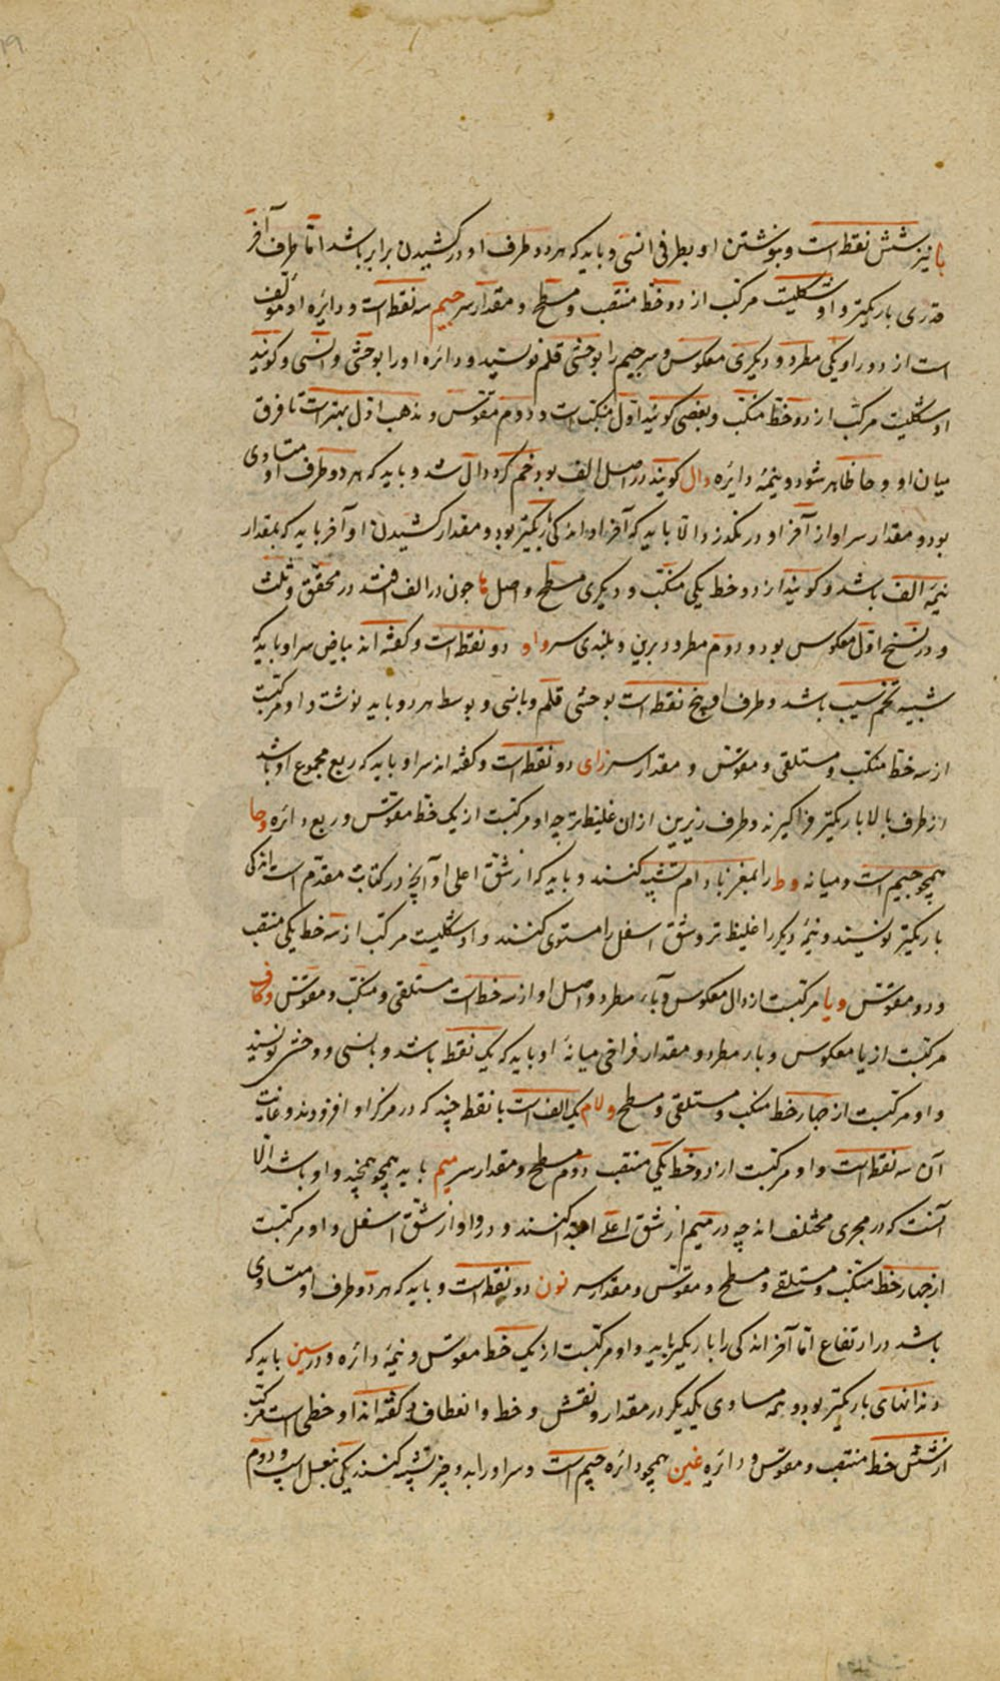 با نیز شش نقطه است و بنوشتن او بطرفی انسی و باید که هر دو طرف او در کشیدن برابر باشد اما طرف آخر
قدری باریکتر و او شکلیست مرکب از دو خط منتصب و مسطح و مقدار سر جیم سه نقطه است و دایره او مؤلف
است از دو ر او یکی مطرد و دیگری معکوس و سر جیم را بوحشی قلم نویسند و دایره او را بوحشی و انسی و کویند
او شکلیست مرکب از دو خط منکب و بعضی کویند اول منکب است و دوم مقوس و مذهب اول بهتر است تا فرق
میان او و حا ظاهر شود و نیمهٔ دایره دال کویند در اصل الف بود خم کرد دال شد و باید که هر دو طرف او متساوی
بود و مقدار سر او از آخر او در نکذرد الا باید که آخر او اندکی باریکتر بود و مقدار کشیدن او آخر باید که بمقدار
نیمهٔ الف باشد و کویند از دو خط یکی منکب و دیکری مسطح و اصل ها جون در الف افتد در محقق و ثلث
و در نسخ اول معکوس بود و دوم مطرد و برین و بلندی سر واو دو نقطه است و کفته اند بیاض سر او باید که
شبیه تخم سیب باشد و طرف او پنج نقطه است بوحشی قلم و بانسی و بوسط هر دو باید نوشت و او مرکبست
از سه خط منکب و مستلقی و مقوس و مقدار سر زای دو نقطه است و کفته اند سر او باید که ربع مجموع او باشد
از طرف بالا باریکتر فراکیرند و طرف زیرین ازان غلیظتر چه او مرکبست از یک خط مقوس و ربع دایره و حا
همچو جیم است و میانه و ط را بمغز بادام تشبیه کنند و باید که از شق اعلی او آنچه در کتابت مقدم است اندکی
باریکتر نویسند و نیمهٔ دیکر را غلیظ تر و شق اسفل را مستوی کنند و او شکلیست مرکب از سه خط یکی منتصب
و دو مقوس و یا مرکبست از دال معکوس و با، مطرد و اصل او از سه خط است مستلقی و منکب و مقوس و کاف
مرکبست از یا معکوس و با مطرد و مقدار فراخی میانهٔ او باید که یک نقطه باشد و بانسی و وحشی نویسند
و او مرکبست از جهار خط منکب و مستلقی و مسطح و لام یک الف است با نقطه چند که در مرکز او افزودند و غایت
آن سه نقطه است و او مرکبست از دو خط یکی منتصب دوم مسطح و مقدار سر میم باید همچو همچند واو باشد الا
آنست که در مجری مختلف اند چه در میم از شق اعلی ابتدا کنند و در واو از شق اسفل و او مرکبست
از جهار خط منکب و مستلقی و مسطح و مقوس و مقدار سر نون دو نقطه است و باید که هر دو طرف او متساوی
باشد در ارتفاع اما آخر اندکی را باریکتر باید و او مرکبست از یک خط مقوس و نیمهٔ دایره و در سین باید که
دندانهای باریکتر بود و همه مساوی یکدیکر در مقدار و نقش و خط و انعطاف و کفته اند او خطی است مرکب
از شش خط منتصب و مقوس و دایره غین همچو دایره جیم است و سر او را به دو چیز تشبیه کنند یکی بنعل اسب و دوم